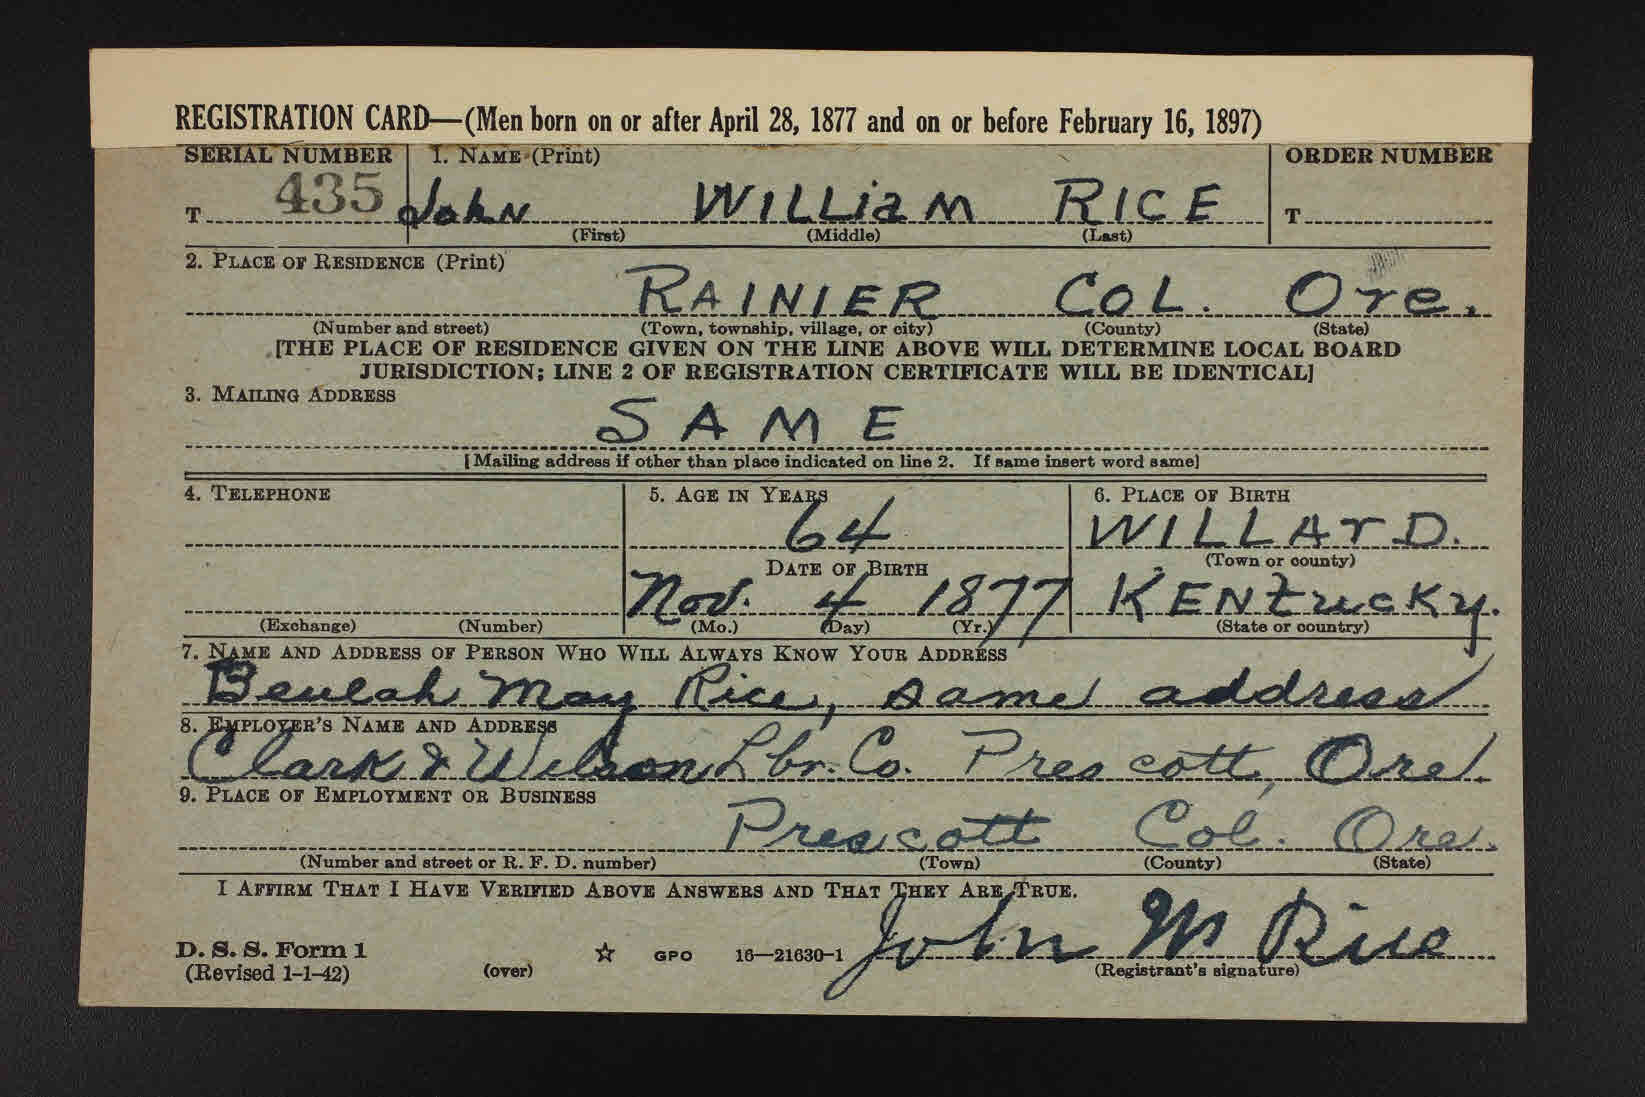 REGISTRATION CARD—(Men born on or after April 28, 1877 and on or before February 16, 1897)
SERIAL NUMBER 1. NAME (Print) ORDER NUMBER
T 435 John WILLiam RICE T
(First) (Middle) (Last)
2. PLACE OF RESIDENCE (Print)
RAINIER COL. Ore.
(Number and street) (Town, township, village, or city) (County) (State)
[THE PLACE OF RESIDENCE GIVEN ON THE LINE ABOVE WILL DETERMINE LOCAL BOARD
JURISDICTION; LINE 2 OF REGISTRATION CERTIFICATE WILL BE IDENTICAL]
3. MAILING ADDRESS
SAME
[Mailing address if other than place indicated on line 2. If same insert word same]
4. TELEPHONE 5. AGE IN YEARS 6. PLACE OF BIRTH
64 WILLArD.
DATE OF BIRTH (Town or county)
Nov. 4 1877 KENtucKy.
(Exchange) (Number) (Mo.) (Day) (Yr.) (State or country)
7. NAME AND ADDRESS OF PERSON WHO WILL ALWAYS KNOW YOUR ADDRESS
Beulah May Rice, same address
8. EMPLOYER'S NAME AND ADDRESS
Clark & Wilson Lbr. Co. Prescott, Ore.
9. PLACE OF EMPLOYMENT OR BUSINESS
Prescott Col. Ore.
(Number and street or R. F. D. number) (Town) (County) (State)
I AFFIRM THAT I HAVE VERIFIED ABOVE ANSWERS AND THAT THEY ARE TRUE.
John W Rice
D. S. S. Form 1
(Revised 1-1-42) (over) ☆ GPO 16—21630-1 (Registrant's signature)